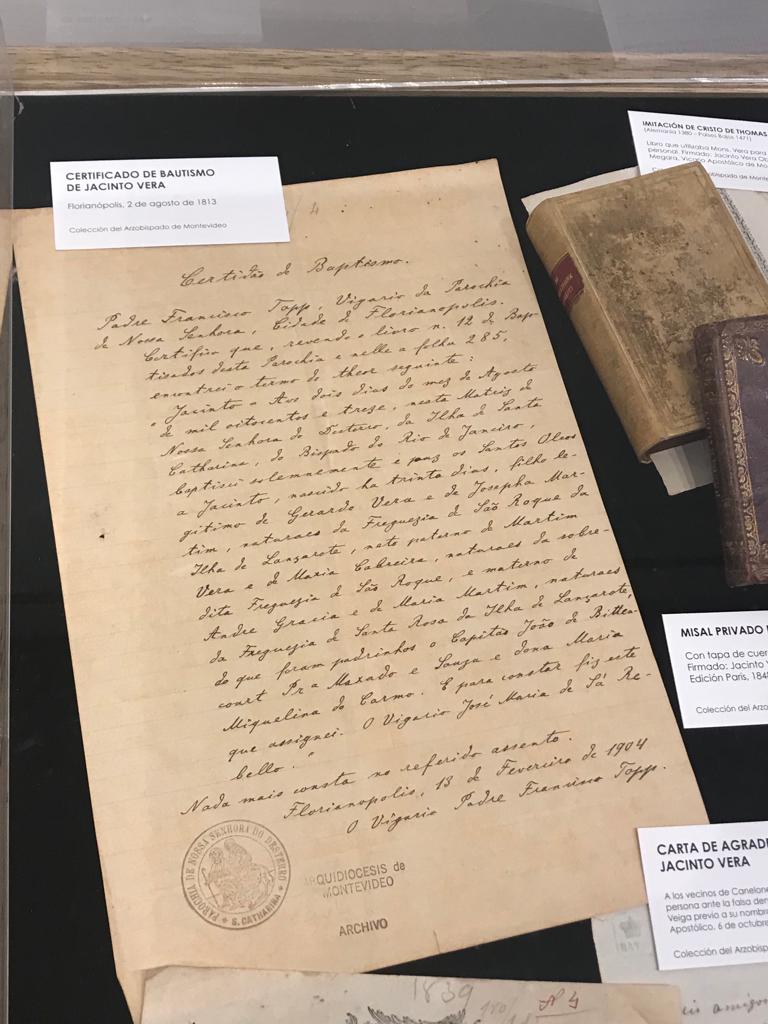 CERTIFICADO DE BAUTISMO
DE JACINTO VERA
Florianópolis, 2 de agosto de 1813
Colección del Arzobispado de Montevideo
IMITACIÓN DE CRISTO DE THOMAS
(Alemania 1380 - Países Bajos 1471)
Libro que utilizaba Mons. Vera para
personal. Firmado: Jacinto Vera Ob
Megara, Vicario Apostólico de Mo
4
Certidão de Baptismo.
Padre Francisco Topp, Vigario da Parochia
de Nossa Senhora, Cidade de Florianopolis.
Certifico que, revendo o livro n. 12 de Bap-
tisados desta Parochia e nelle a folha 285,
encontrei o termo do theor seguinte:
"Jacinto = Aos dois dias do mez de Agosto
de mil oitocentos e treze, nesta Matriz de
Nossa Senhora do Desterro, da Ilha de Santa
Catharina, do Bispado do Rio de Janeiro,
baptisei solemnemente e puz os Santos Oleos
a Jacinto, nascido ha trinta dias, filho le-
gitimo de Gerardo Vera e de Josepha Mar-
tim, naturaes da Freguezia de São Roque da
Ilha de Lanzarote, neto paterno de Martim
Vera e de Maria Cabreira, naturaes da sobre-
dita Freguezia de São Roque, e materno de
Andre Gracia e de Maria Martim, naturaes
da Freguezia de Santa Rosa da Ilha de Lanzarote,
do que foram padrinhos o Capitão João de Bitten-
court Pra Maxado e Souza e dona Maria
Miquelina do Carmo. E para constar fiz este
que assignei. O Vigario José Maria de Sá Re-
bello."
Nada mais consta no referido assento.
Florianopolis, 13 de Fevereiro de 1904
O Vigario Padre Francisco Topp.
PAROCHIA DE NOSSA SENHORA DO DESTERRO
S. CATHARINA
ARQUIDIOCESIS de
MONTEVIDEO
ARCHIVO
MISAL PRIVADO
Con tapa de cuer
Firmado: Jacinto V
Edición París, 184
Colección del Arzo
CARTA DE AGRADE
JACINTO VERA
A los vecinos de Canelone
persona ante la falsa den
Veiga previo a su nombra
Apostólico. 6 de octubre
Colección del Arzobisp
1839